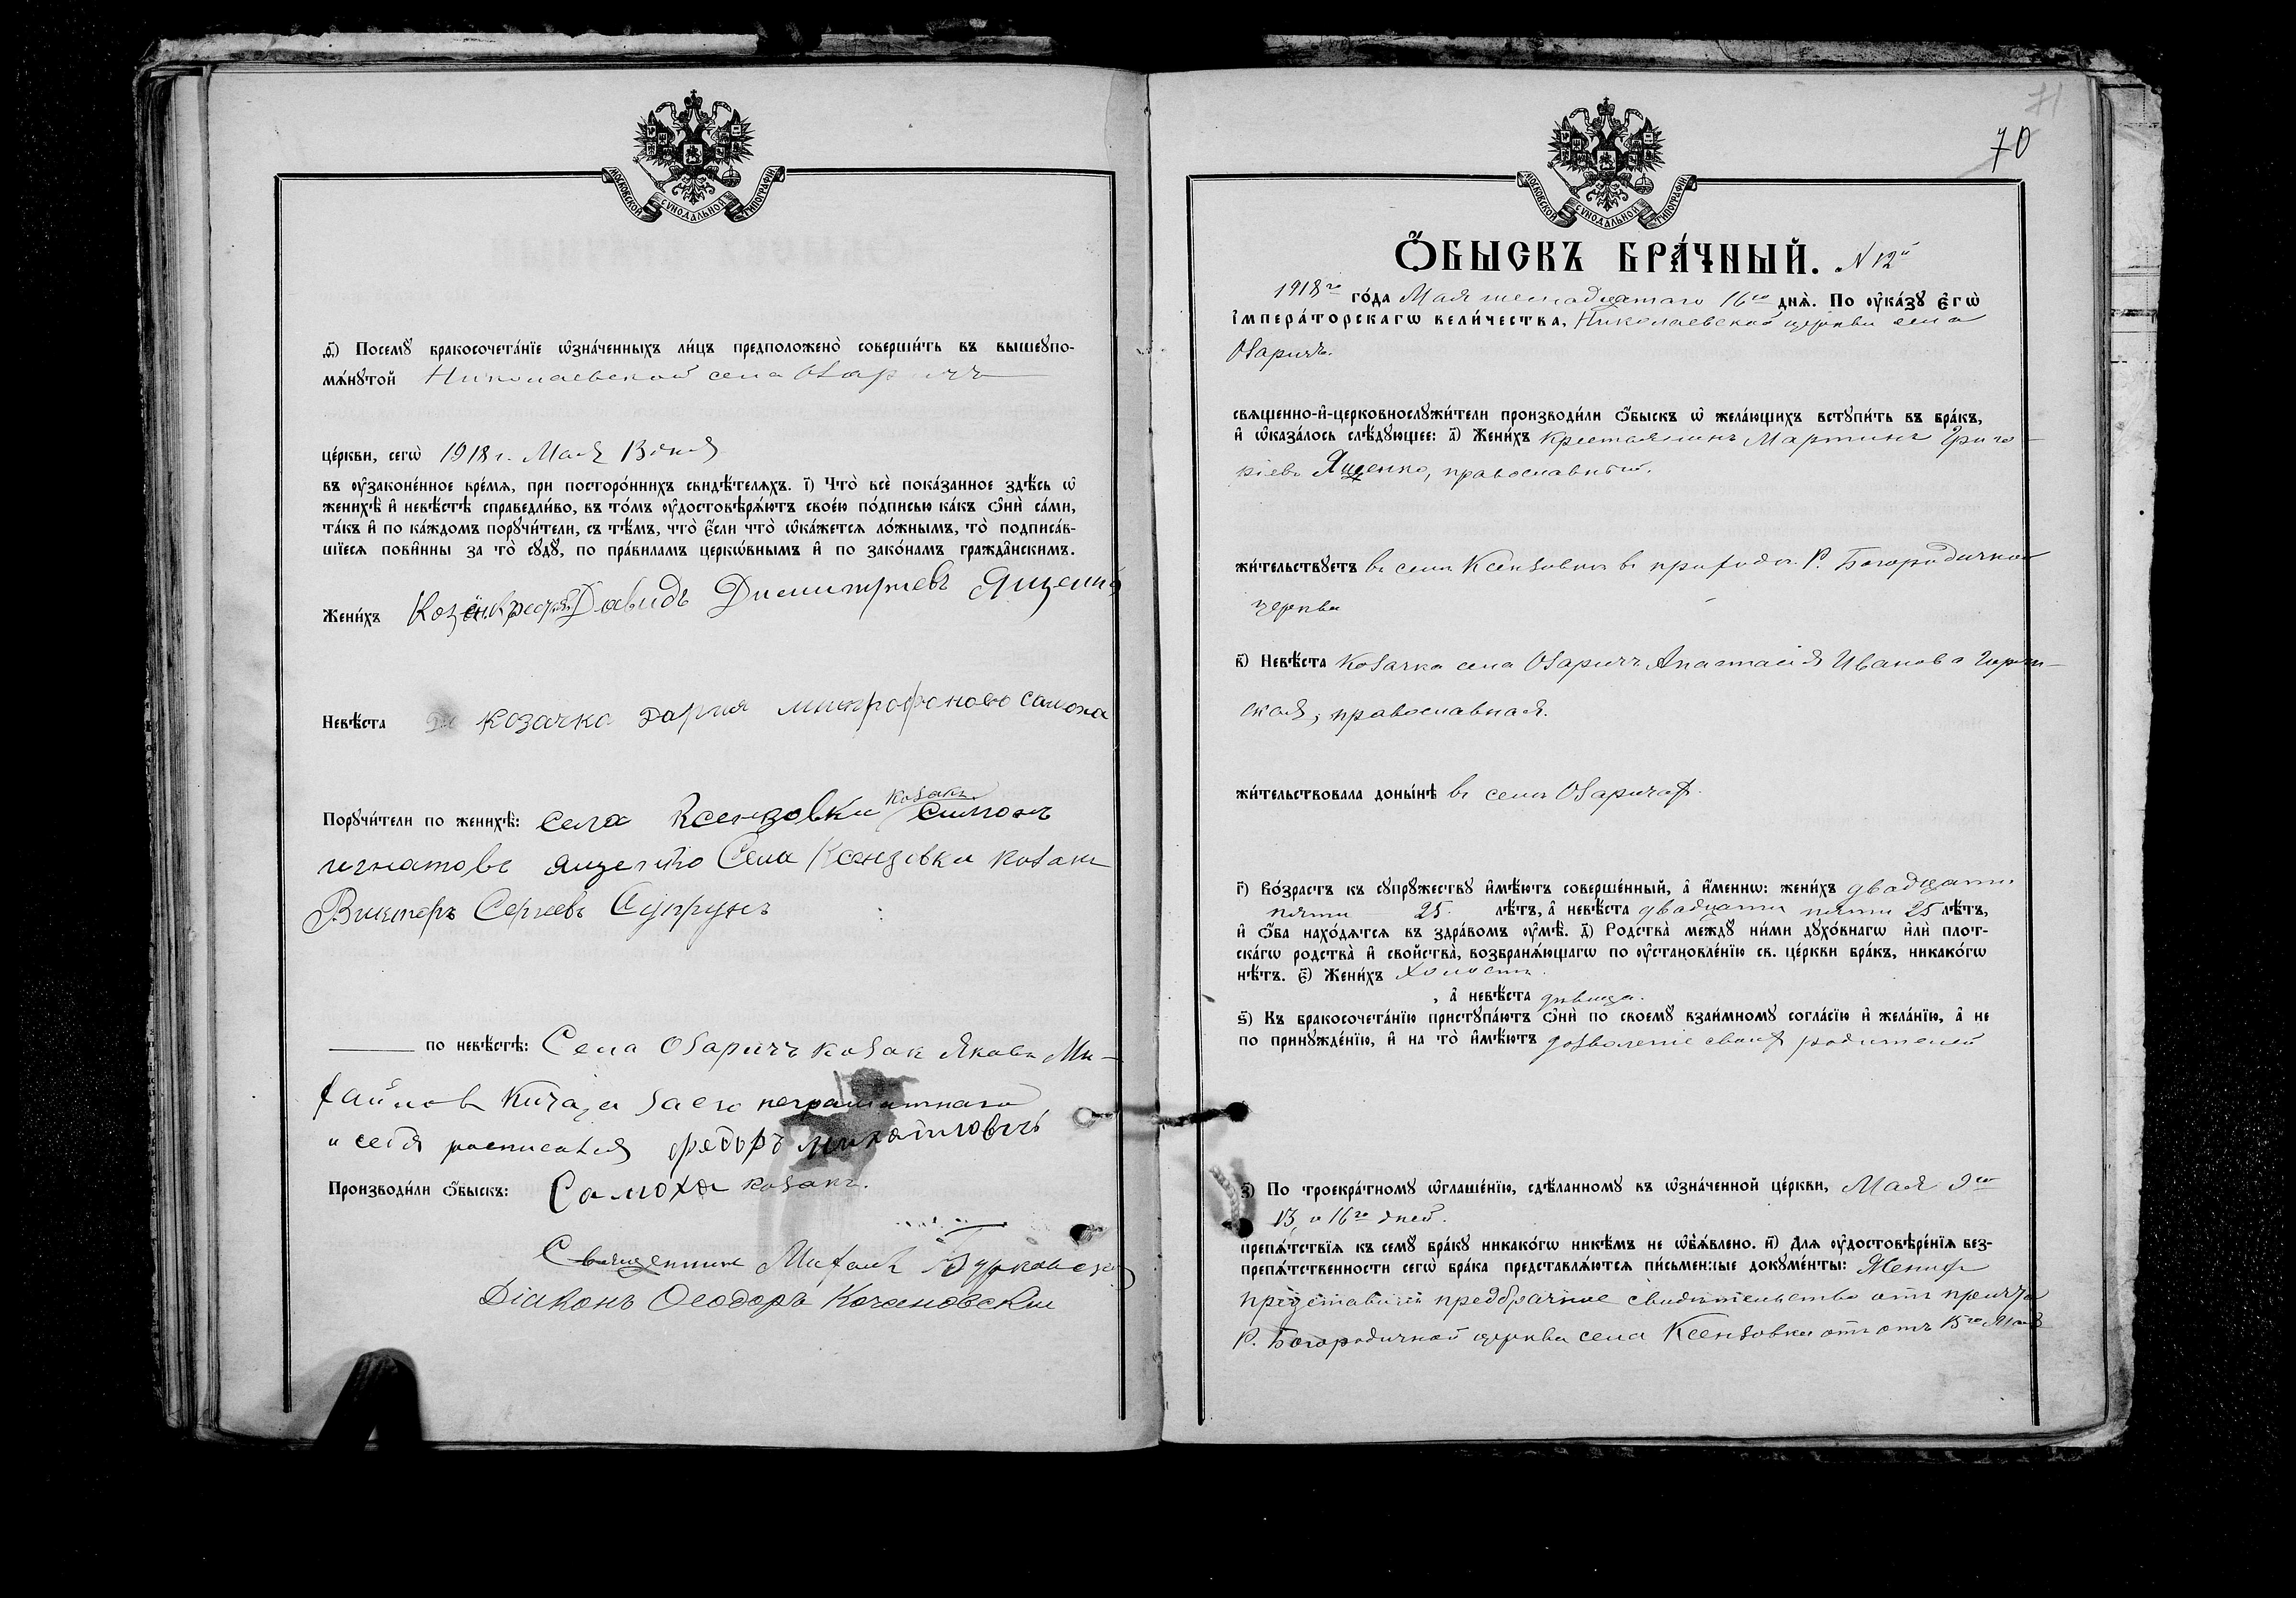 МОСКОВСКОЙ СѴНОДАЛЬНОЙ ТИПОГРАФІИ
ѳ҃) Посемꙋ бракосочета́нїе ѡ҆зна́ченныхъ ли́цъ предположено̀ соверши́ть въ вышеꙋпо-
мѧ́нꙋтой Николаевской села Озаричъ
це́ркви, сегѡ̀ 1918 г. Мая 13 дня
въ оу҆зако́ненное вре́мѧ, при посторо́ннихъ свидѣ́телѧхъ. і҃) Что̀ всѐ пока́занное здѣ́сь ѡ҆
женихѣ̀ и҆ невѣ́стѣ справедли́во, въ то́мъ оу҆достовѣрѧ́ютъ свое́ю по́дписью ка́къ ѻ҆нѝ са́ми,
та́къ и҆ по ка́ждомъ порꙋчи́тели, съ тѣ́мъ, что̀ є҆́сли что̀ ѡ҆ка́жетсѧ ло́жнымъ, то̀ подписа́в-
шїесѧ пови́нны за то̀ сꙋдꙋ̀, по пра́виламъ церкѡ́внымъ и҆ по зако́намъ гражда́нскимъ.
Жени́хъ Давидъ Димитриевъ Ященко
Невѣ́ста козачка Дария митрофанова самоха
Порꙋчи́тели по женихѣ̀: села Ксензовки козакъ Симонъ
игнатовъ ященко Села Ксензовки козакъ
Викторъ Сергеевъ Супрунъ
по невѣ́стѣ: Села Озаричъ козак Яковъ Ми-
хайлов за его неграмотнаго
и себя росписался федоръ михайловичъ
Производи́ли ѻ҆́быскъ: Самоха козакъ.
Священникъ Михаилъ
Діаконъ Ѳеодоръ Качановскій
71
70
МОСКОВСКОЙ СѴНОДАЛЬНОЙ ТИПОГРАФІИ
Ѻ҆́БЫСКЪ БРА́ЧНЫЙ. N 12й
1918го го́да Мая шестнадцатаго 16го днѧ̀. По оу҆ка́зꙋ Є҆гѡ̀
І҆мпера́торскагѡ вели́чества, Николаевской церкви села
Озаричъ
свѧщенно-и҆-церковнослꙋжи́тели производи́ли ѻ҆́быскъ ѡ҆ жела́ющихъ встꙋпи́ть въ бра́къ,
и҆ ѡ҆каза́лось слѣ́дꙋющее: а҃) Жени́хъ крестьянинъ Мартинъ Григо-
ріевъ Ященко, православный.
жи́тельствꙋетъ въ селѣ Ксензовкѣ въ приходѣ Р. Богородичной
церкви
в҃) Невѣ́ста Козачка села Озаричъ Анастасія Иванова
ская, православная.
жи́тельствовала доны́нѣ въ селѣ Озаричахъ.
г҃) Во́зрастъ къ сꙋпрꙋ́жествꙋ и҆мѣ́ютъ соверше́нный, а҆ и҆́меннѡ: жени́хъ двадцати
пяти 25 лѣ́тъ, а҆ невѣ́ста двадцати пяти 25 лѣ́тъ,
и҆ ѻ҆́ба нахо́дѧтсѧ въ здра́вомъ оу҆мѣ̀. д҃) Родства̀ междꙋ̀ ни́ми дꙋхо́внагѡ и҆лѝ плот-
ска́гѡ родства̀ и҆ сво́йства̀, возбранѧ́ющагѡ по оу҆становле́нїю св. це́ркви бра́къ, никако́гѡ
нѣ́тъ. є҃) Жени́хъ холостъ.
, а҆ невѣ́ста дѣвица.
ѕ҃) Къ бракосочета́нїю пристꙋпа́ютъ ѻ҆нѝ по своемꙋ̀ взаи́мномꙋ согла́сїю и҆ жела́нїю, а҆ не
по принꙋжде́нїю, и҆ на то̀ и҆мѣ́ютъ дозволеніе своихъ родителей
з҃) По троекра́тномꙋ ѡ҆глаше́нїю, сдѣ́ланномꙋ въ ѡ҆зна́ченной це́ркви, Мая 9го
13, и 16го дней.
препѧ́тствїѧ къ семꙋ̀ бра́кꙋ никако́гѡ никѣ́мъ не ѡ҆б̾ѧ́влено. и҃) Длѧ̀ оу҆достовѣре́нїѧ без-
препѧ́тственности сегѡ̀ бра́ка представлѧ́ютсѧ пи́сьменные докꙋме́нты: Женихъ
представилъ предбрачное свидѣтельство отъ причта
Р. Богородичной церкви села Ксензовки отъ 15го Мая